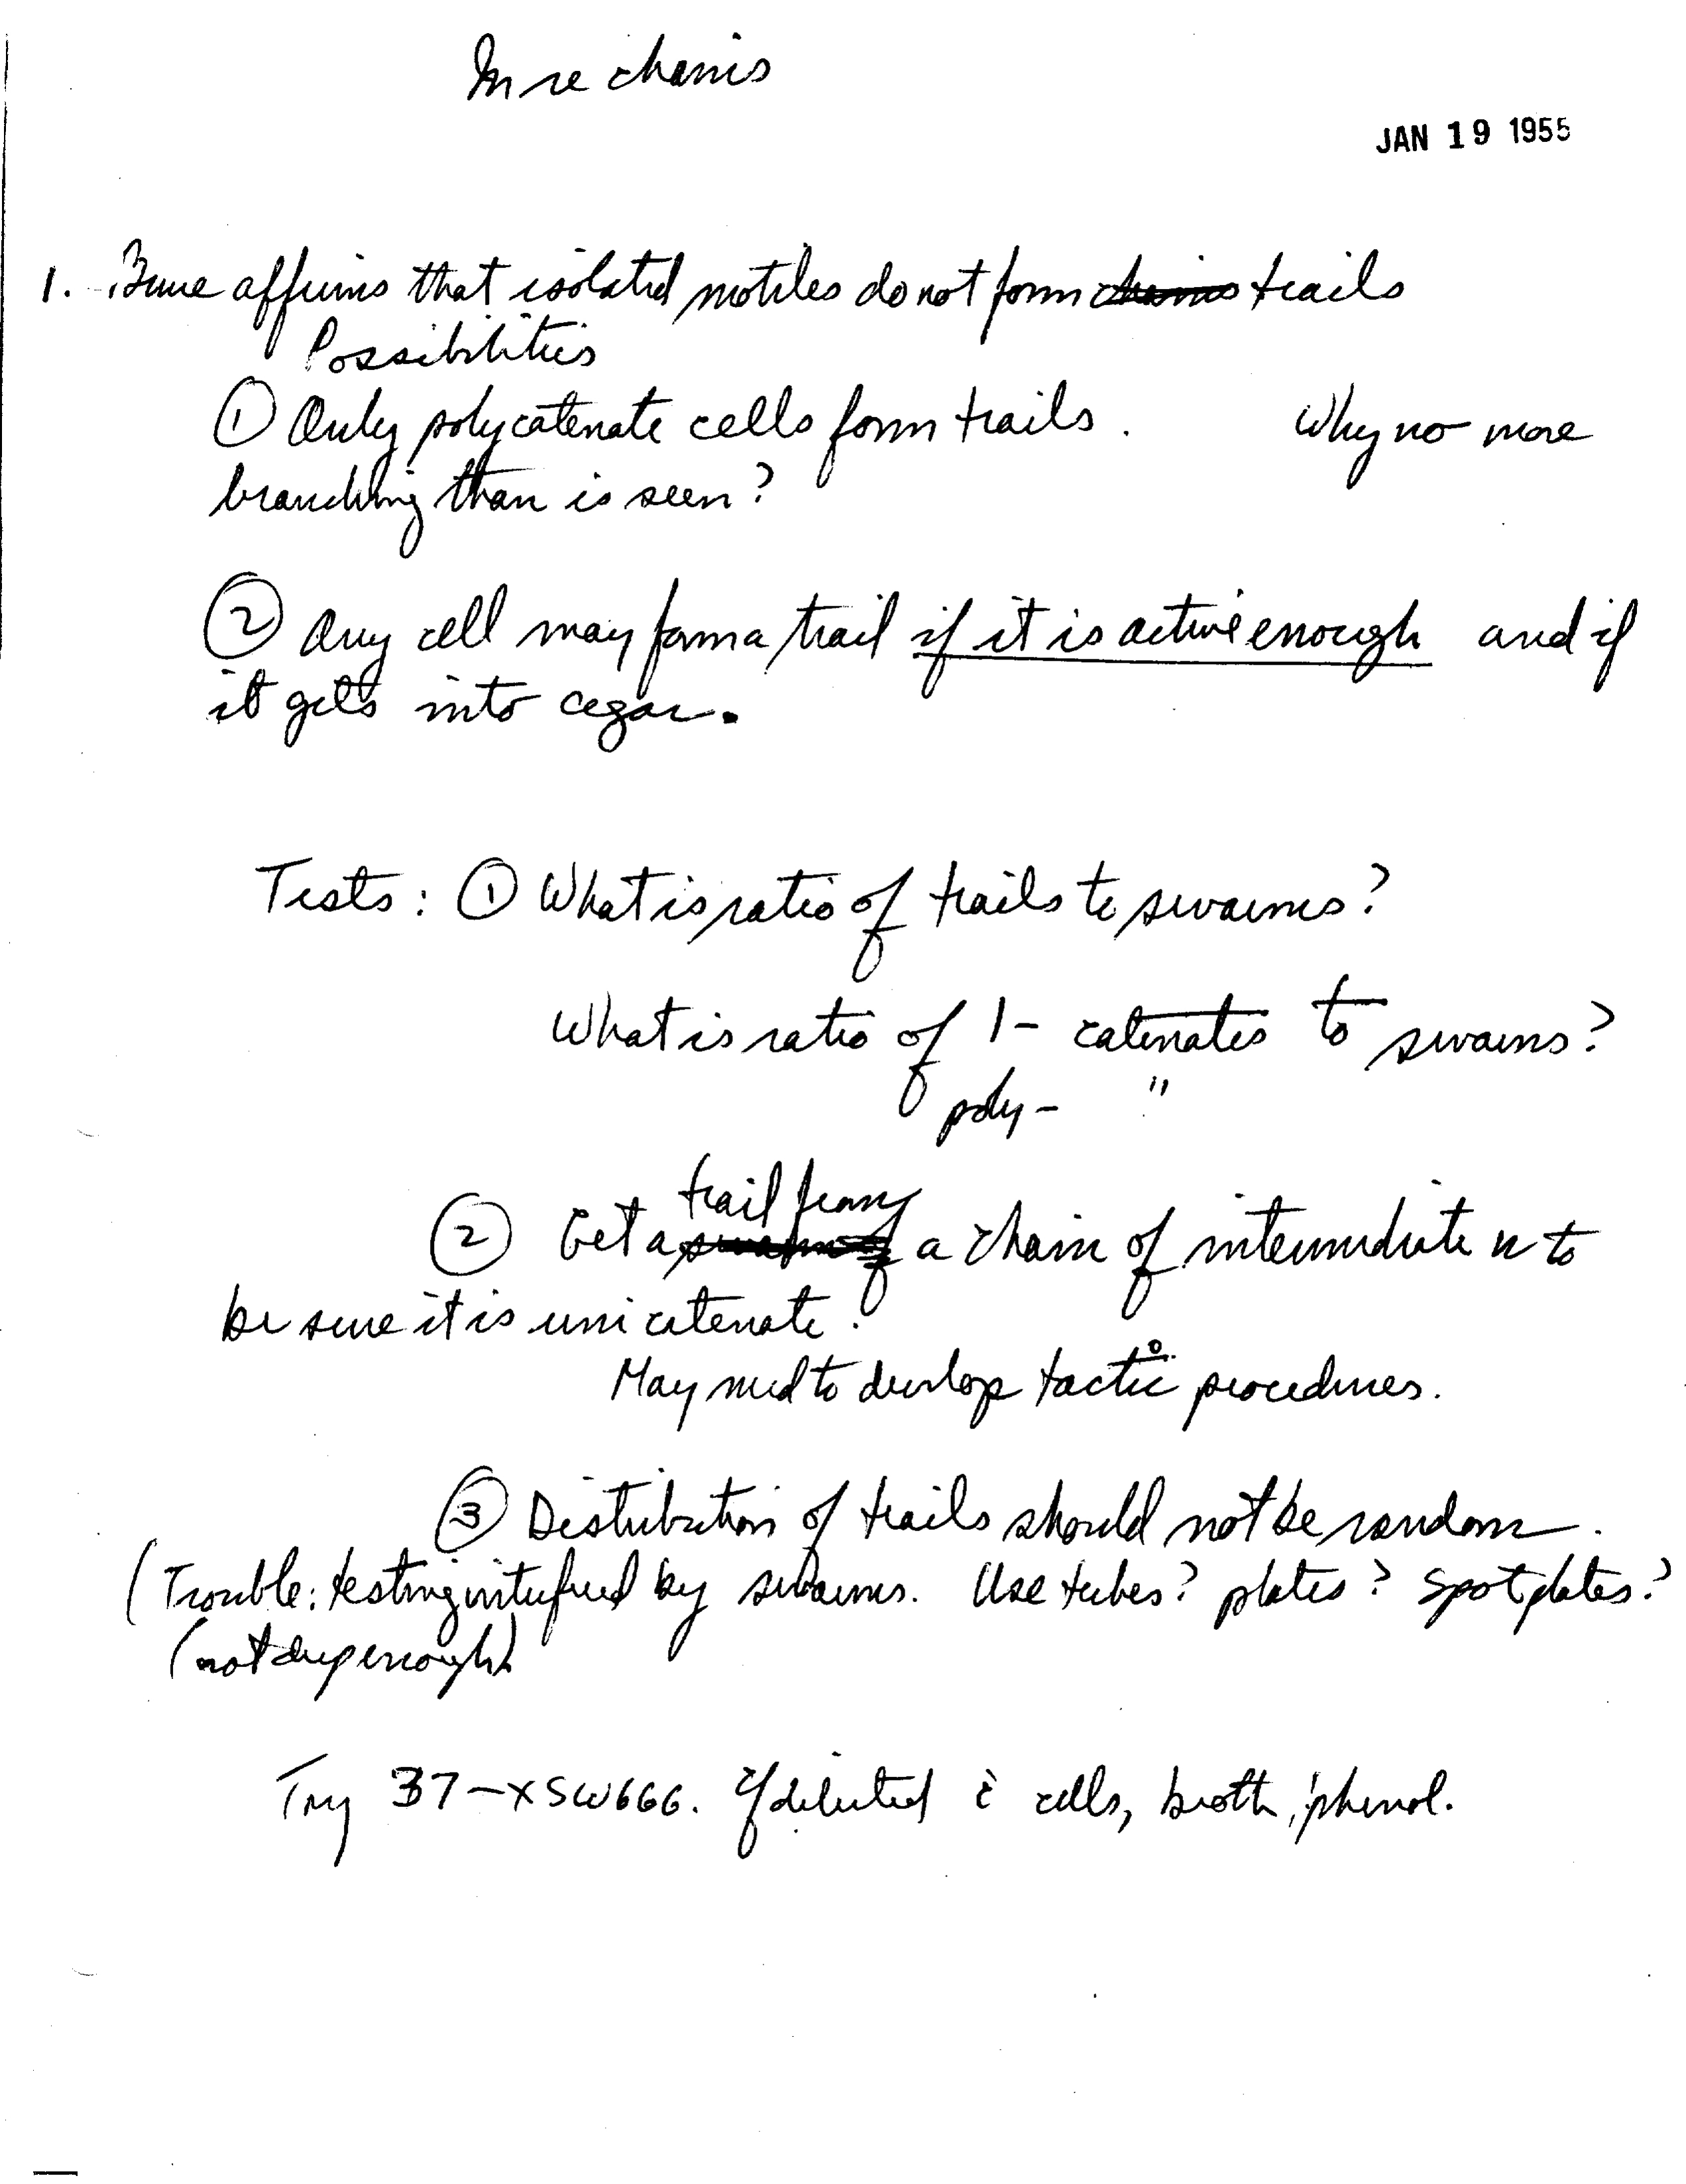 In re chains
JAN 19 1955
1. affirms that isolated motiles do not form chains trails
Possibilities
① Only polycatenate cells form trails. Why no more
branching than is seen?
② Any cell may form a trail if it is active enough and if
it gets into agar.
Tests: ① What is ratio of trails to swarms?
What is ratio of 1- catenates to swarms?
poly- "
trail from
② Get a a chain of intermediate n to
be sure it is unicatenate.
May need to develop tactic procedures.
③ Distribution of trails should not be random.
(Trouble: testing interfered by swarms. Use tubes? plates? Spot plates?
(not deep enough)
Try 37 -x SW666. If diluted c̄ cells, broth, phenol.